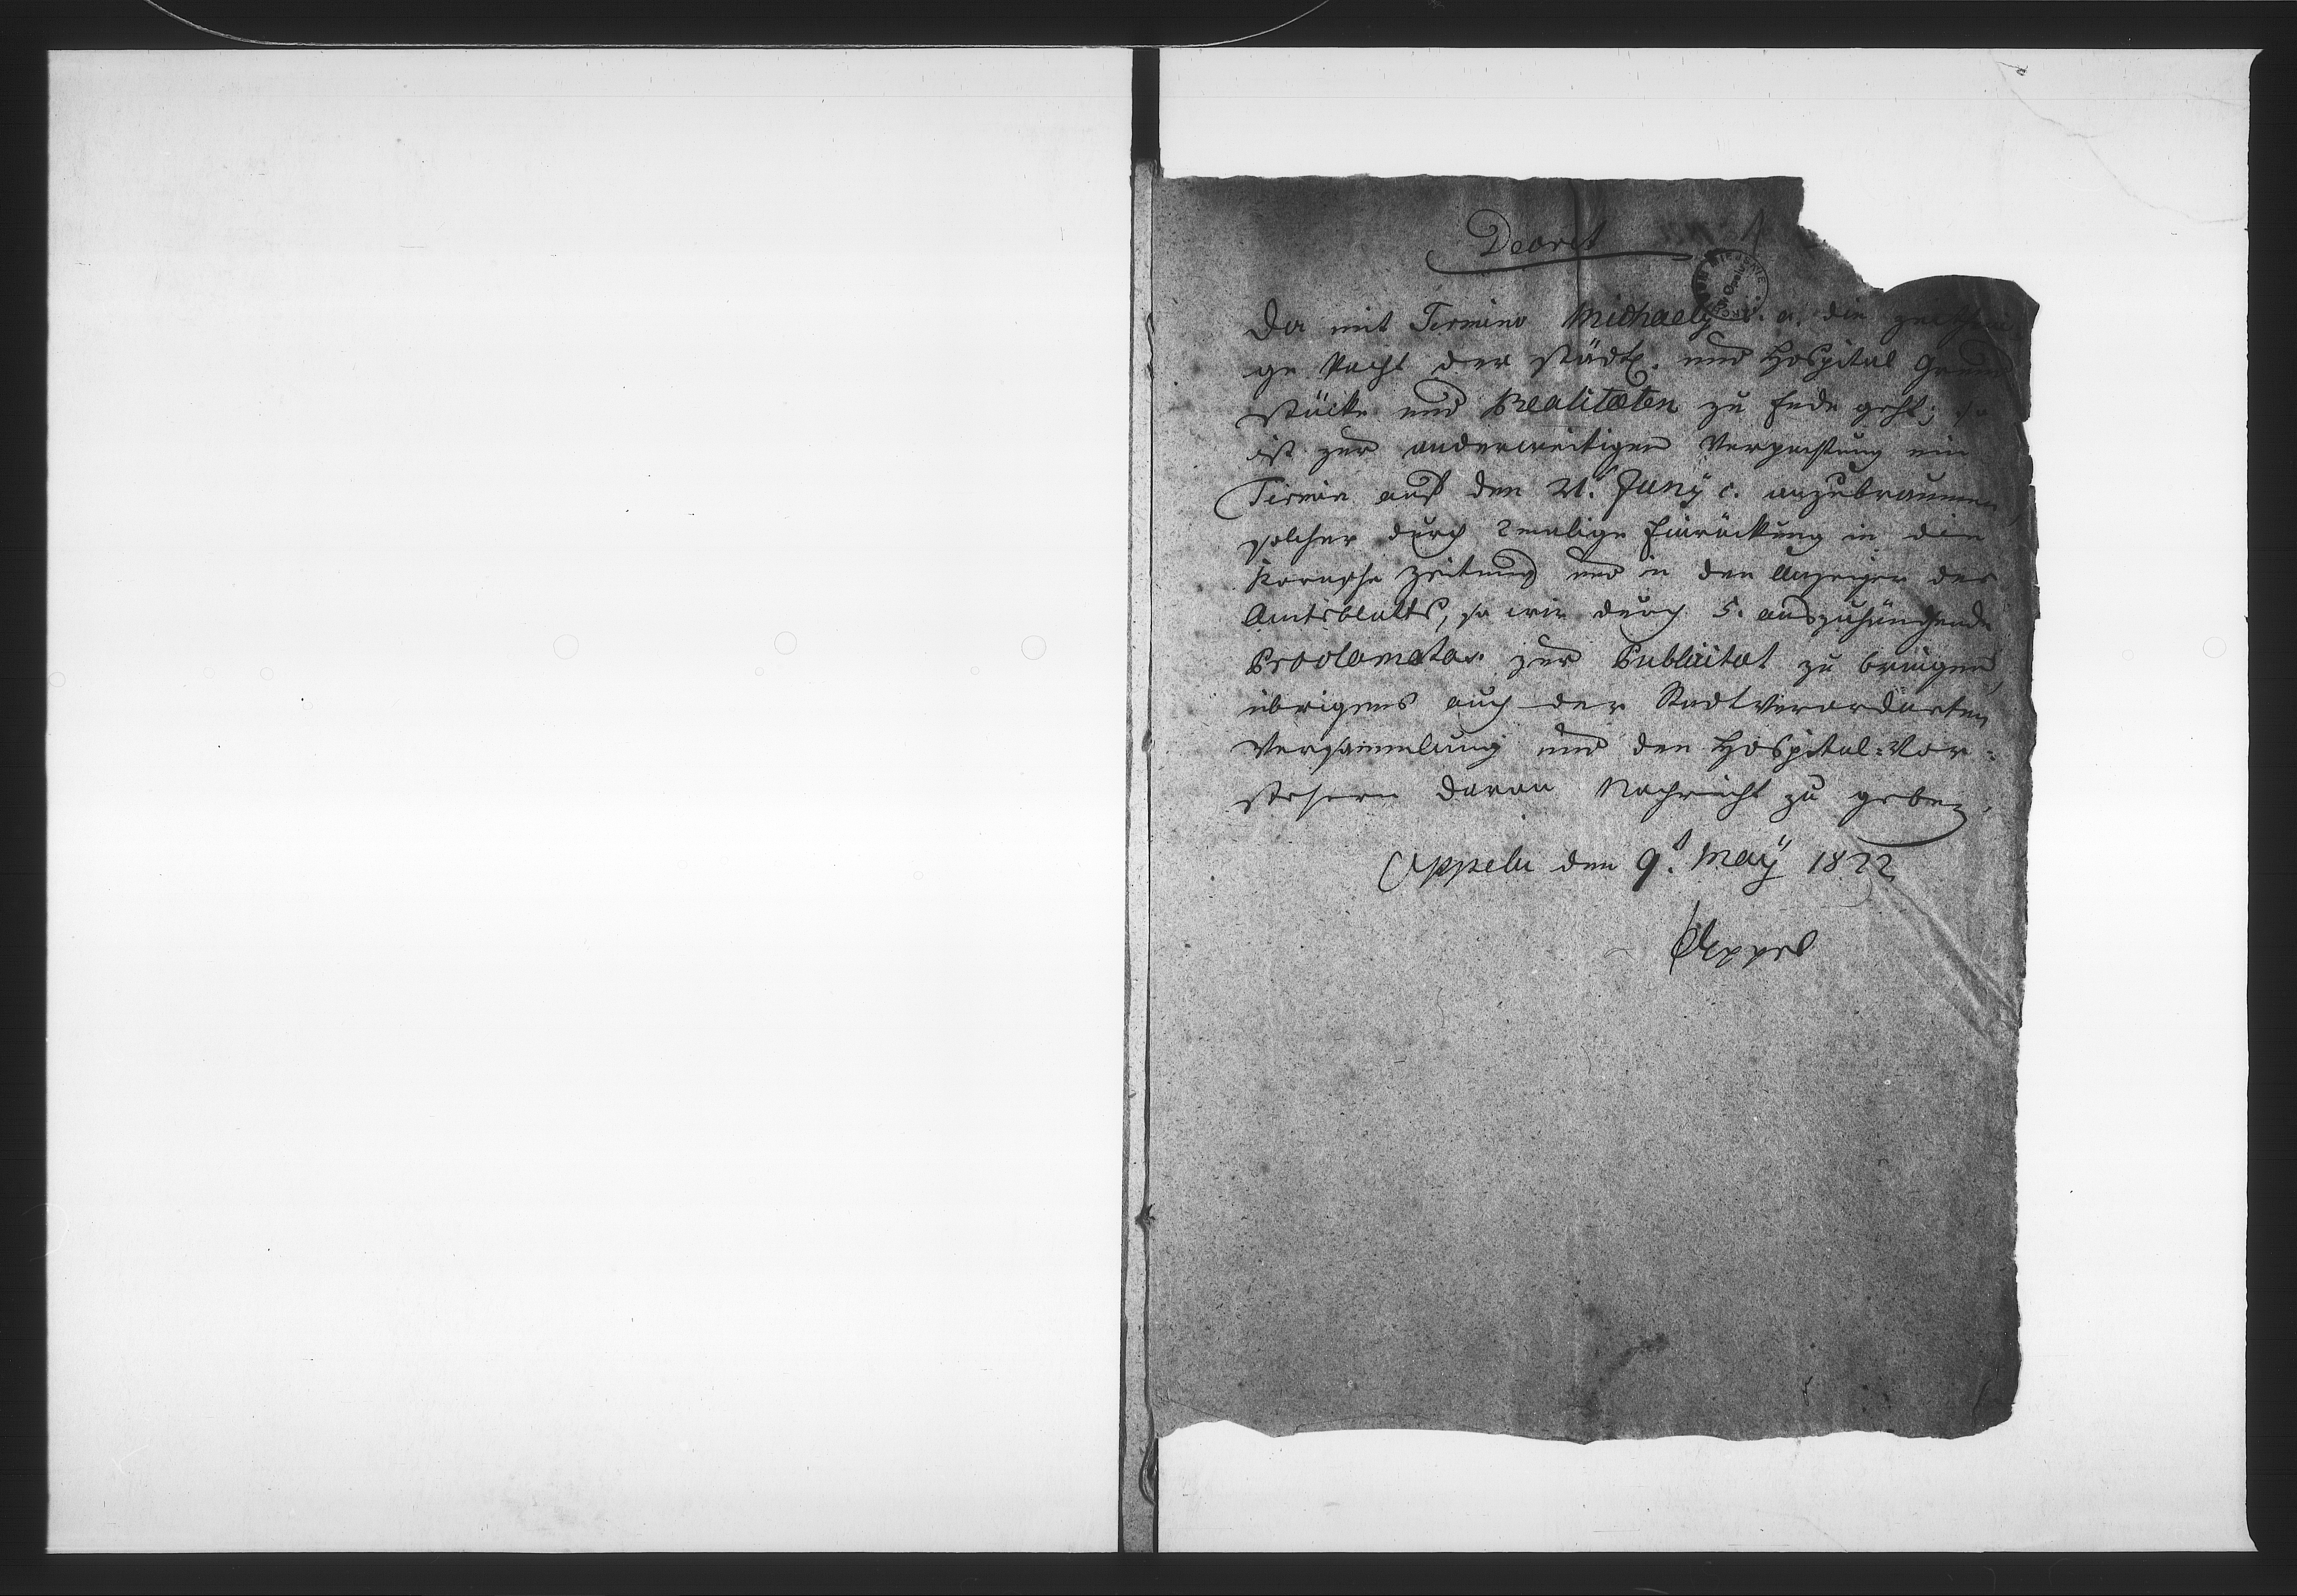 Decret
Da mit Termino Michaely c. a. die zeitheri
ge Pacht der städt. und Hospital Grund
stücke und Realitæten zu Ende geht; so
ist zur anderweitigen Verpachtung ein
Termin auf den 21. Juny c. anzubraumen,
solcher durch 2malige Einrückung in die
Zeitung und in den Anzeiger des
Amtsblatts, so wie durch 5. auszuhängende
Proclamata zur Publicitat zu bringen,
übrigens auch der Stadtverordneten
Versammlung und den Hospital-Vor-
stehern davon Nachricht zu geben.
Oppeln den 9t. May 1822